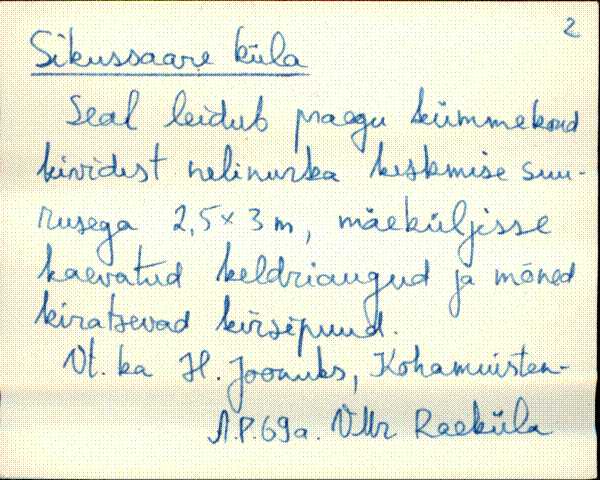 2
Sikussaare küla
Seal leidub praegu kümmekond
kividest nelinurka keskmise suu-
rusega 2,5 × 3 m, mäeküljisse
kaevatud keldriaugud ja mõned
kiratsevad kirsipuud.
Vt. ka H. Joonuks, Kohamuisten-
A.P. 69a. VMr Raeküla